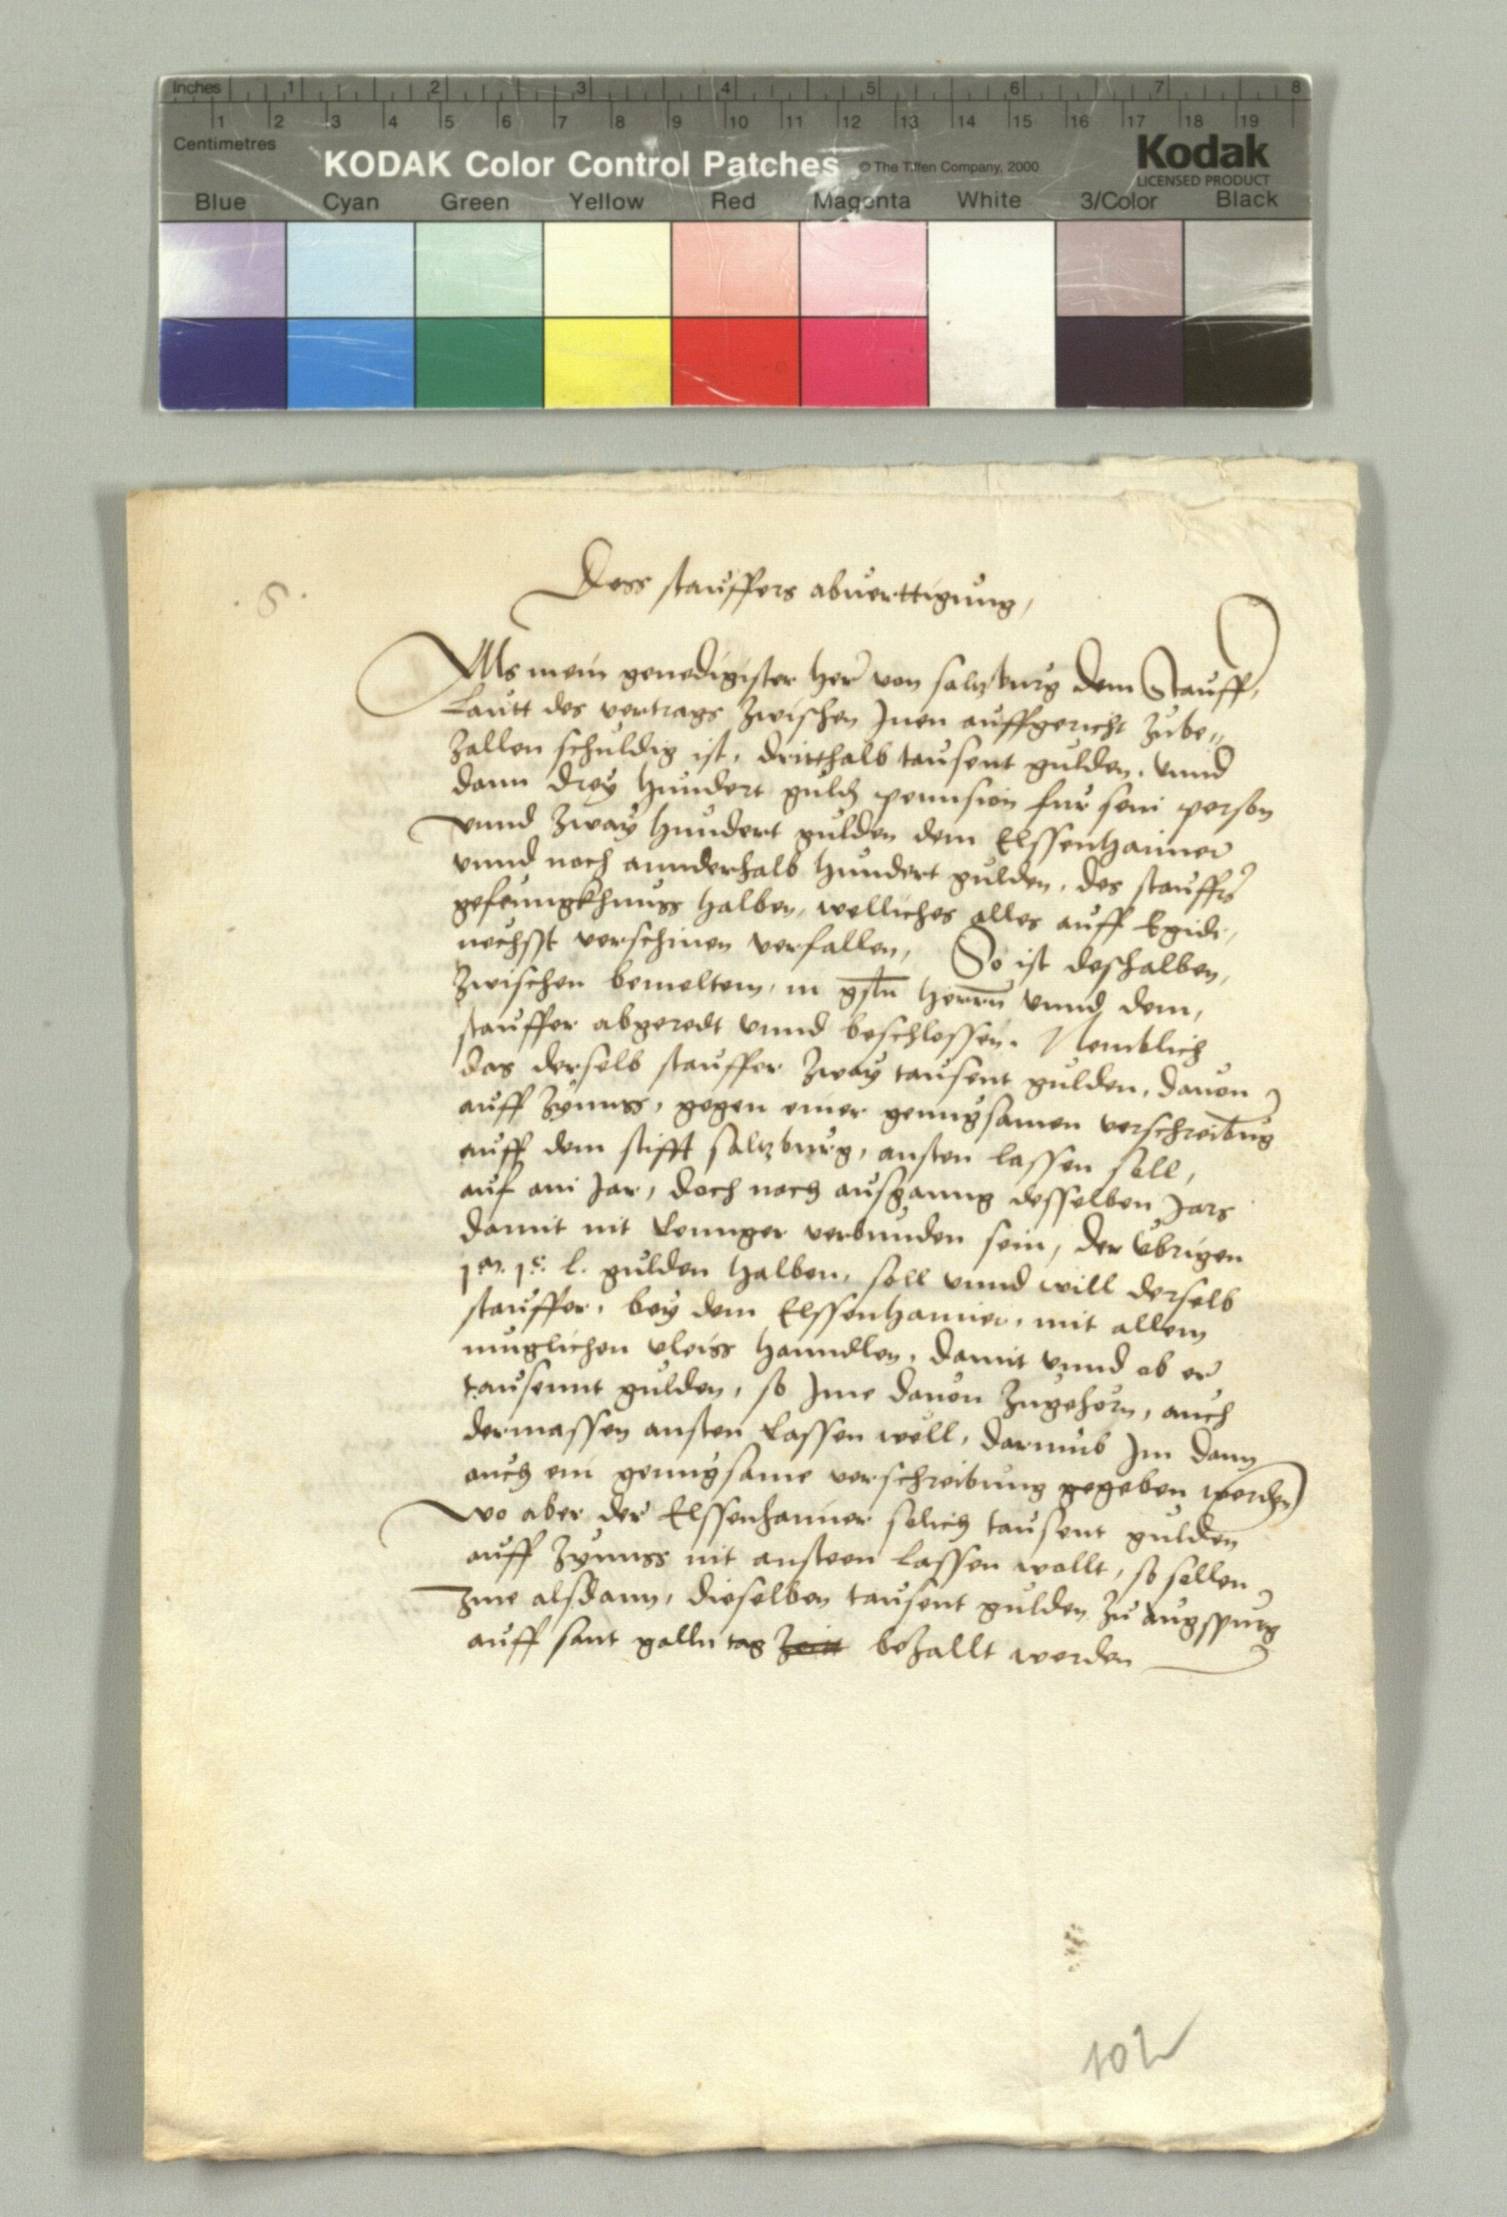 Inches 1 2 3 4 5 6 7 8
1 2 3 4 5 6 7 8 9 10 11 12 13 14 15 16 17 18 19
Centimetres
KODAK Color Control Patches © The Tiffen Company, 2000
Kodak
LICENSED PRODUCT
Blue Cyan Green Yellow Red Magenta White 3/Color Black
. S .
Dess stauffers abuerttigung,
Als mein genedigister her von saltzburg dem Stauff,
Lautt des vertrags zwischen Jnen auffgericht zube„
zallen schuldig ist, dritthalb tausent gulden, vnnd
dann drey hundert guld pennsion fur sein person
vnnd zway hundert gulden dem Elssenhaimer
vnnd noch annderhalb hundert gulden, des stauffers
gefenngkhnuss halben, welliches alles auff Egidi,
nechsst verschinen verfallen, So ist deshalben,
zwischen bemeltem, m gstn herrn vnnd dem,
stauffer abgeredt vnnd beschlossen. Nemblich
das derselb stauffer zway tausent gulden, dauon
auff zynnss, gegen einer genugsamen verschreibug
auff dem stifft saltzburg, ansten lassen soll,
auf ain Jar, doch nach ausganng desselben Jars
damit nit lennger verbunden sein, der vbrigen
jm. jc. l. gulden halben, soll vnnd will derselb
stauffer, bey dem Elssenhaimer, mit allem
muglichen vleiss hanndlen, damit vnnd ob er
tausennt gulden, so Jme dauon zugehorn, auch
dermassen ansten lassen well, darumb Jm dann
auch ein genugsame verschreibung gegeben werden
wo aber der Elssenhaimer solich tausent gulden
auff zynnss nit ansteen lassen wollt, so sollen
Jme alsdann, dieselben tausent gulden zu augspurg
auff sant galln tag zeit bezallt werden
102